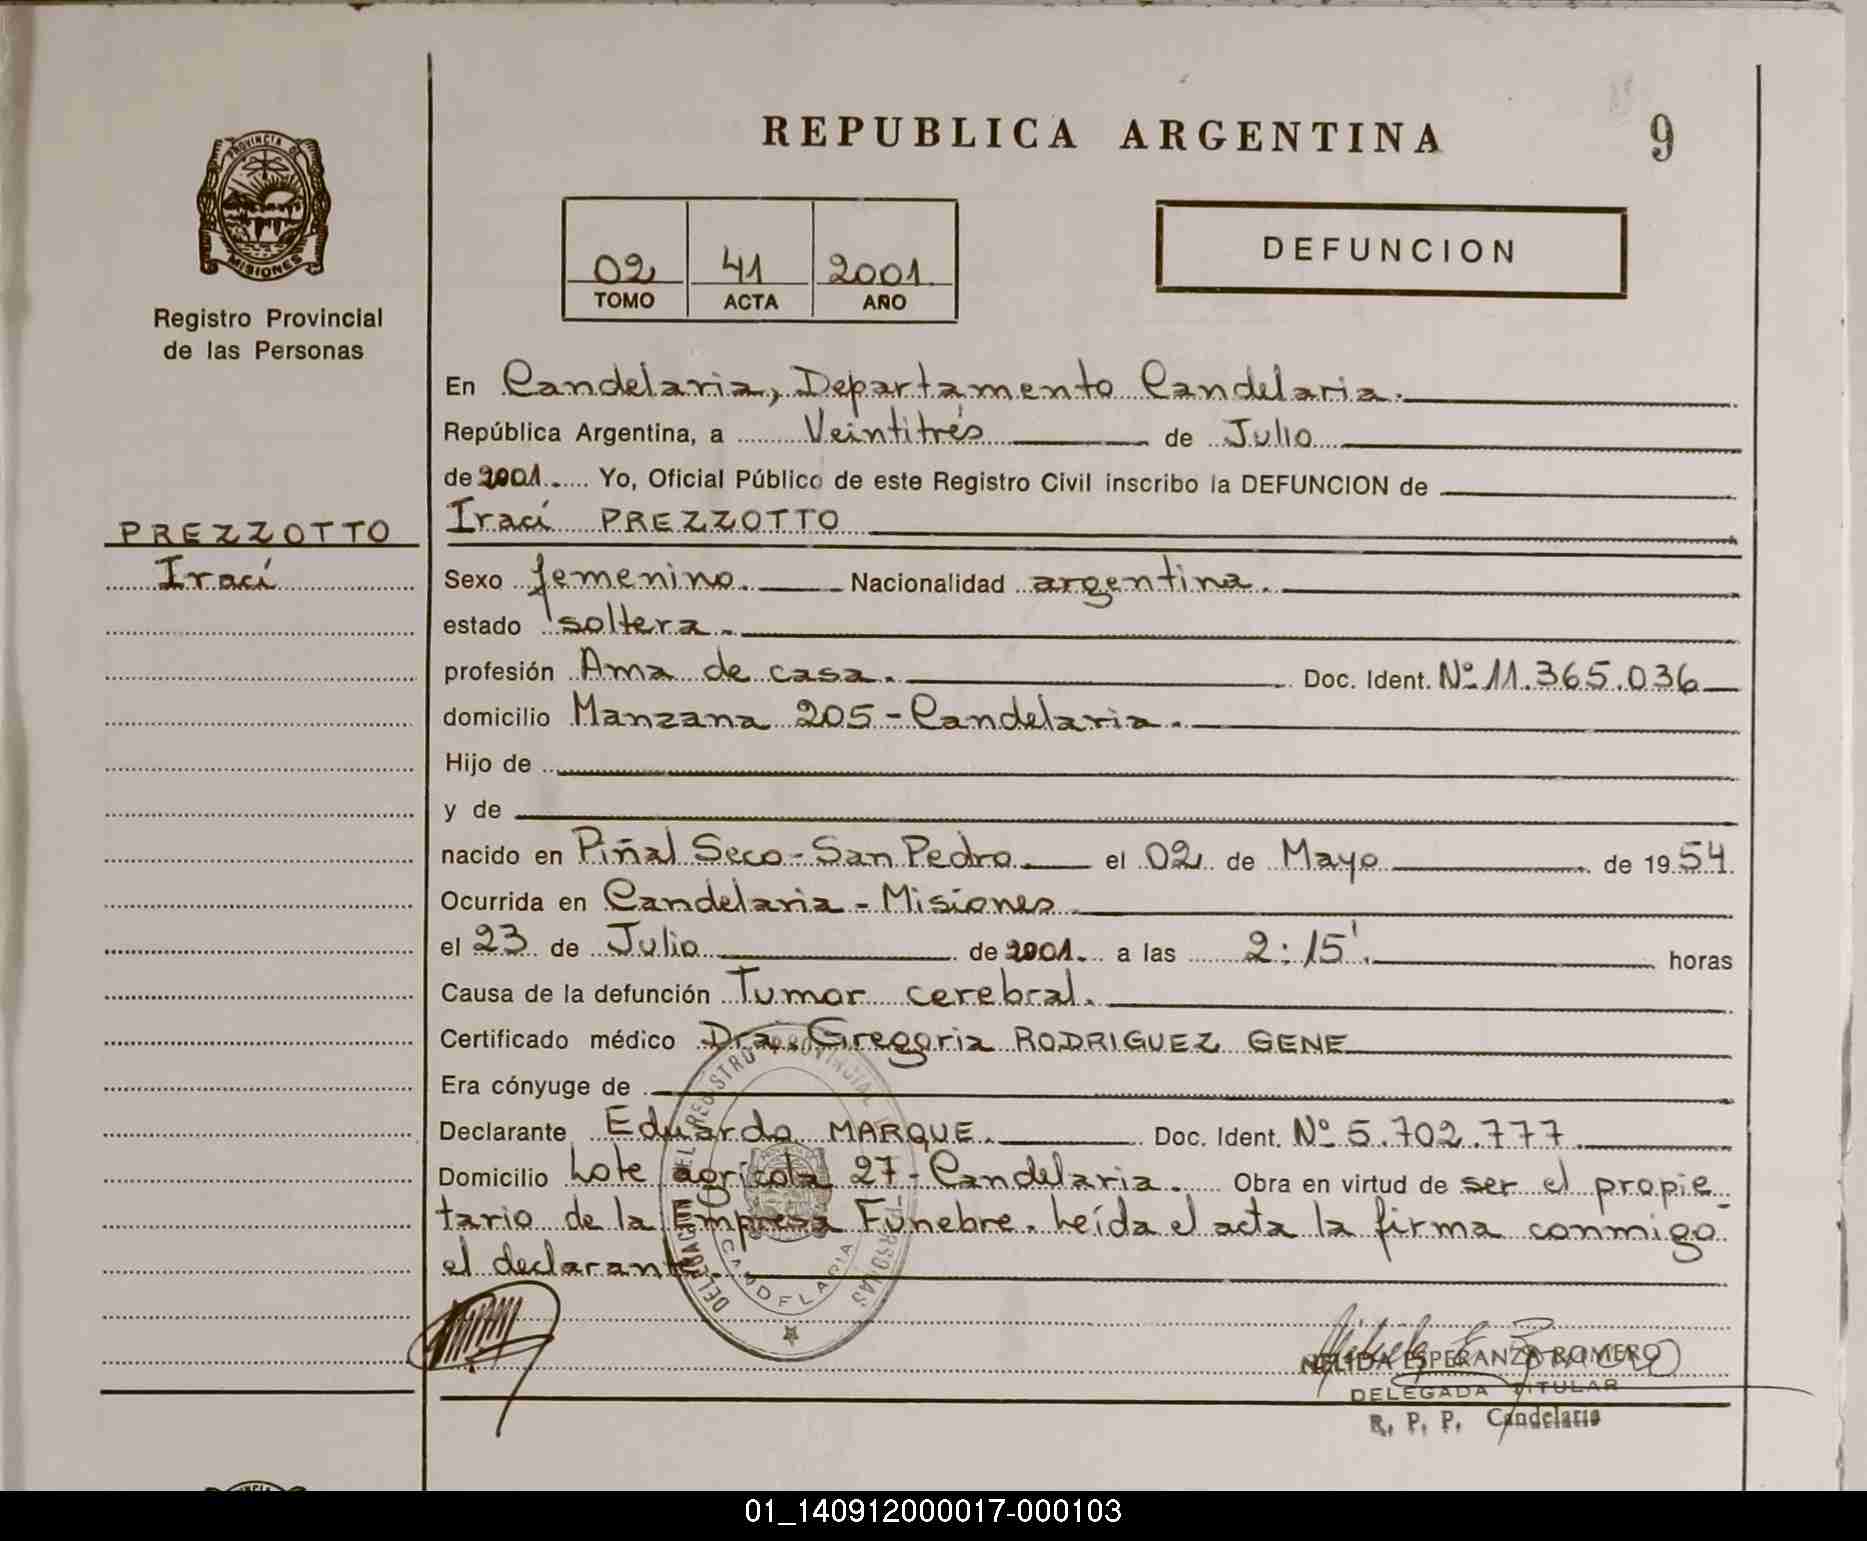 REPUBLICA ARGENTINA
9
PROVINCIA DE
MISIONES
Registro Provincial
de las Personas
02 41 2001
TOMO ACTA AÑO
DEFUNCION
En Candelaria, Departamento Candelaria.
República Argentina, a Veintitrés de Julio
de 2001. Yo, Oficial Público de este Registro Civil inscribo la DEFUNCION de
PREZZOTTO
Iraci
Iraci PREZZOTTO
Sexo femenino. Nacionalidad argentina.
estado soltera.
profesión Ama de casa. Doc. Ident. Nº 11.365.036
domicilio Manzana 205 - Candelaria.
Hijo de
y de
nacido en Piñal Seco - San Pedro el 02 de Mayo de 1954.
Ocurrida en Candelaria - Misiones
el 23 de Julio de 2001. a las 2:15'. horas
Causa de la defunción Tumor cerebral.
Certificado médico Dra. Gregoria RODRIGUEZ GENE
Era cónyuge de
Declarante Eduardo MARQUE. Doc. Ident. Nº 5.702.777
Domicilio Lote agrícola 27 - Candelaria. Obra en virtud de ser el propie
tario de la Empresa Fúnebre. Leída el acta la firma conmigo
el declarante.
DELEGACION DEL REGISTRO PROVINCIAL PERSONAS
CANDELARIA
NELIDA ESPERANZA ROMERO
DELEGADA TITULAR
R. P. P. Candelaria
01_140912000017-000103